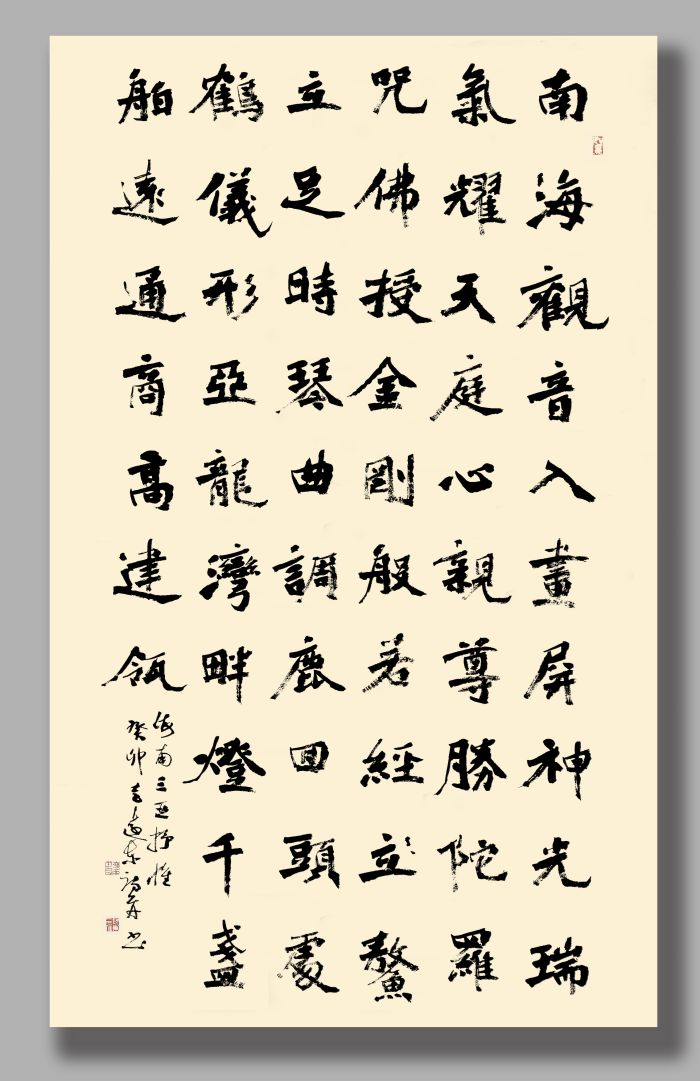 南海觀音入畫屏神光瑞
氣耀天庭心親尊勝陀羅
咒佛授金剛般若經立鰲
立足時琴曲調鹿回頭處
鶴儀形亞龍灣畔燈千盞
舶遠通商高建瓴
海南三亞抒懷
癸卯 詩并書